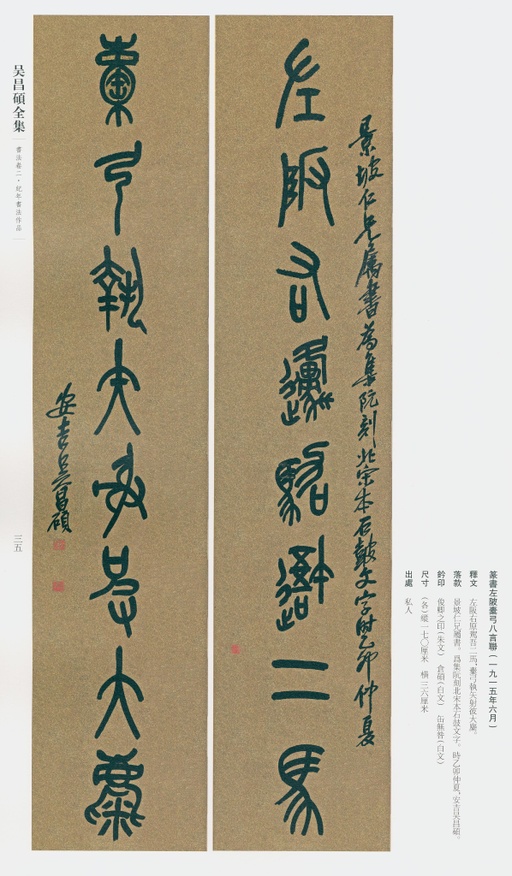 篆書左陂橐弓八言聯（一九一五年六月）
釋文　左陂右原駕吾二馬，橐弓執矢射彼大麋。
落款　景坡仁兄屬書。爲集阮刻北宋本石鼓文字。時乙卯仲夏，安吉吳昌碩。
鈐印　俊卿之印（朱文）　倉碩（白文）　缶無咎（白文）
尺寸　（各）縱一七〇厘米　橫三六厘米
出處　私人
景坡仁兄屬書為集阮刻北宋本石鼓文字時乙卯仲夏
左陂右邍駕䢱二馬
橐弓執矢射彼大麋
安吉吳昌碩
吴昌碩全集
書法卷二·紀年書法作品
三五